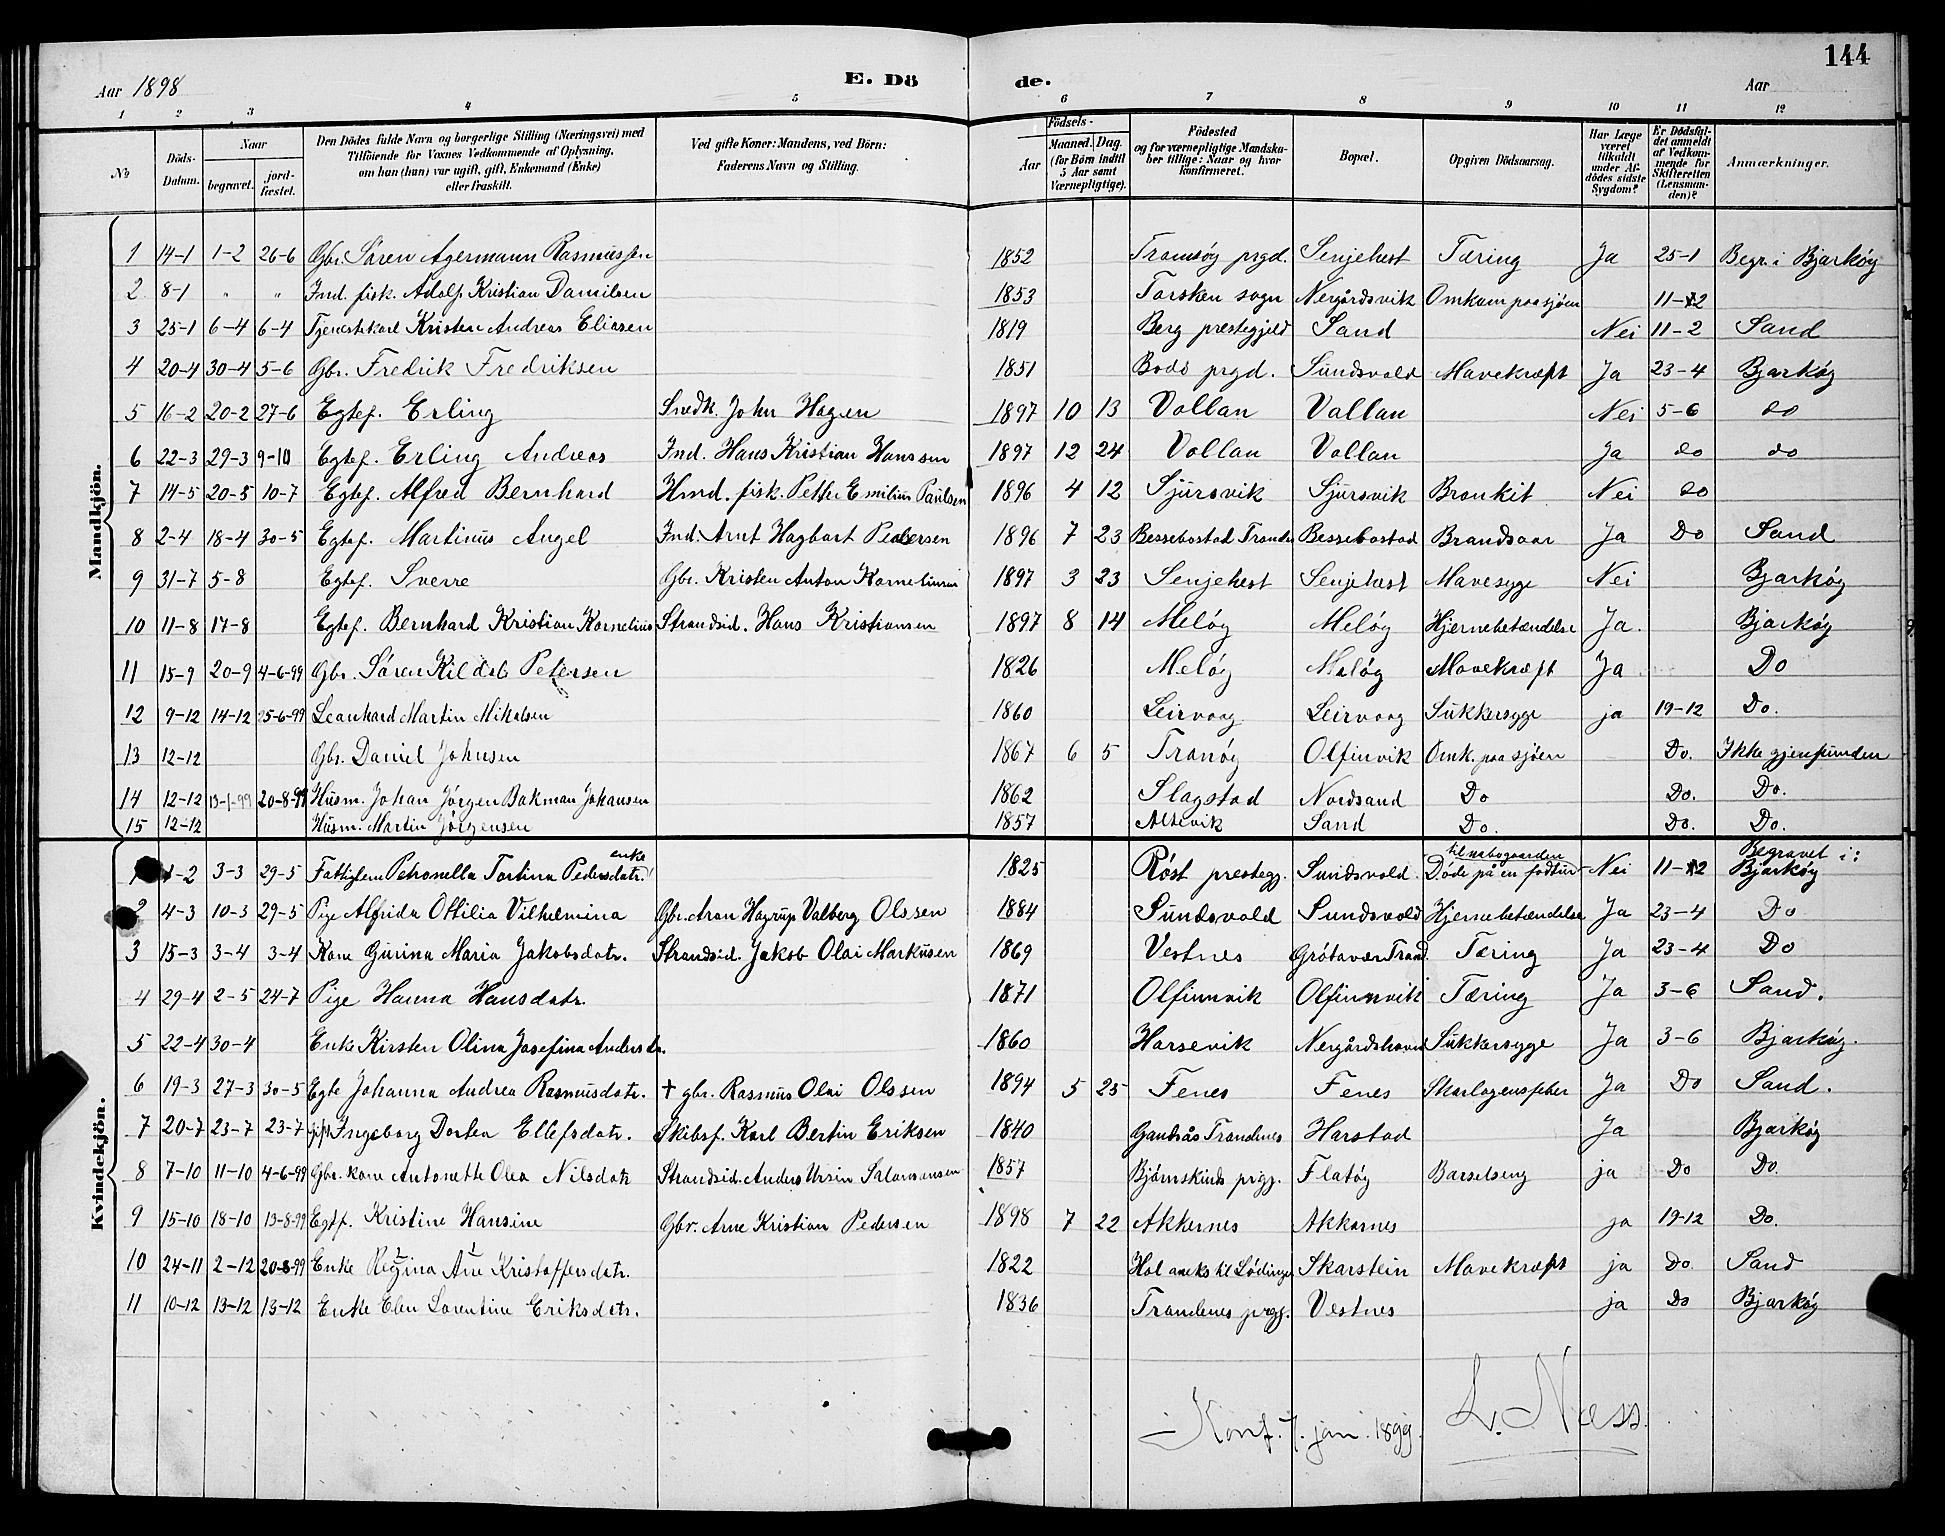 144
Aar 1898
E. Dö de.
Aar
1 2 3 4 5 6 7 8 9 10 11 12
No
Döds-Datum.
Naar
begravet.
jord-fæstet.
Den Dödes fulde Navn og borgerlige Stilling (Næringsvei) med Tilföiende for Voxnes Vedkommende af Oplysning, om han (hun) var ugift, gift, Enkemand (Enke) eller fraskilt.
Ved gifte Koner: Mandens, ved Börn: Faderens Navn og Stilling.
Födsels-
Aar
Maaned. Dag. (for Börn indtil 5 Aar samt Værnepligtige).
Födested og for værnepligtige Mandskaber tillige: Naar og hvor konfirmeret.
Bopæl.
Opgiven Dödsaarsag.
Har Læge været tilkaldt under Afdödes sidste Sygdom?
Er Dödsfaldet anmeldt af Vedkommende for Skifteretten (Lensmanden)?
Anmærkninger.
Mandkjön.
1 14-1 1-2 26-6 Gbr. Sören Agermann Rasmussen 1852 Tromsöy prgd. Senjehest Tæring Ja 25-1 Begr. i Bjarköy
2 8-1 " " Ind. fisk. Adolf Kristian Danilsen 1853 Torsken sogn Nergårdsvik Omkom paa sjöen 11-2
3 25-1 6-4 6-4 Tjenestekarl Kristen Andreas Eliasen 1819 Berg prestegjeld Sand Nei 11-2 Sand
4 20-4 30-4 5-6 Gbr. Fredrik Fredriksen 1851 Bodö prgd. Sundsvold Mavekræft Ja 23-4 Bjarköy
5 16-2 20-2 27-6 Egtef. Erling Snedk. John Hagen 1897 10 13 Vollan Vollan Nei 5-6 do
6 22-3 29-3 9-10 Egtef. Erling Andreas Ind. Hans Kristian Hanssen 1897 12 24 Vollan Vollan Ja do do
7 14-5 20-5 10-7 Egtef. Alfred Bernhard Hmd. fisk. Petter Emilius Paulsen 1896 4 12 Sjursvik Sjursvik Bronkit Nei do
8 2-4 18-4 30-5 Egtef. Martinus Angel Ind. Arnt Hagbart Pedersen 1896 7 23 Bessebostad Tranöe Bessebostad Brandsaar Ja Do Sand
9 31-7 5-8 Egtef. Sverre Gbr. Kristen Anton Korneliussen 1897 3 23 Senjehest Senjehest Mavesyge Nei Bjarköy
10 11-8 17-8 Egtef. Bernhard Kristian Kornelius Strandsid. Hans Kristiansen 1897 8 14 Melöy Melöy Hjernebetændelse Ja. Bjarköy
11 15-9 20-9 4-6-99 Gbr. Sören Kildal Petersen 1826 Melöy Melöy Mavekræft Ja Do
12 9-12 14-12 25-6-99 Leonhard Martin Mikalsen 1860 Leirvaag Leirvaag Sukkersyge ja 19-12 Do.
13 12-12 Gbr. Daniel Johnsen 1867 6 5 Tranöy Olfinvik Omk. paa sjöen Do. Ikke gjenfunden
14 12-12 13-1-99 20-8-99 Husm. Johan Jörgen Bakman Johansen 1862 Slagstad Nordsand Do Do. Do.
15 12-12 Husm. Martin Jörgensen 1857 Altevik Sand Do. Do. Do.
Kvindekjön.
1 1-2 3-3 29-5 Fattiglem Petronella Tortina Pedersdatr. enke 1825 Röst prestegj. Sundsvold. Döde på en fodtur til nabogaarden Nei 11-2 Begravet i: Bjarköy
2 4-3 10-3 29-5 Pige Alfrida Ottilia Vilhelmina Gbr. Aron Hagrup Valberg Olssen 1884 Sundsvold Sundsvold Hjernebetændelse Ja 23-4 Do
3 15-3 3-4 3-4 Kone Gurina Maria Jakobsdatr. Strandsid. Jakob Olai Markussen 1869 Vestnes Grötavær Trand. Tæring Ja 23-4 Do
4 29-4 2-5 24-7 Pige Hanna Hansdatr. 1871 Olfinnvik Olfinnvik Tæring Ja 3-6 Sand.
5 22-4 30-4 Enke Kirsten Olina Josefina Andersdr. 1860 Harsevik Nergårdshavn Sukkersyge Ja 3-6 Bjarköy.
6 19-3 27-3 30-5 Egte Johanna Andrea Rasmusdatr. † gbr. Rasmus Olai Olssen 1894 5 25 Fenes Fenes Skarlagensfeber Ja Do Sand.
7 20-7 23-7 23-7 gift Ingeborg Dortea Ellefsdatr. Skibsf. Karl Bertin Eriksen 1840 Gansås Trondenes Harstad Ja Bjarköy
8 7-10 11-10 4-6-99 Gbr. kone Antonette Olea Nilsdatr Strandsid. Anders Ursin Salomonsen 1857 Bjørnskinds prgj. Flatöy Barselseng ja Do Do.
9 15-10 18-10 13-8-99 Egtf. Kristine Hansine Gbr. Arne Kristian Pedersen 1898 7 22 Akkernes Akkarnes ja 19-12 Do.
10 24-11 2-12 20-8-99 Enke Regina Ane Kristoffersdatr. 1822 Hol aneks til Lödinge Skarstein Mavekræft ja Do. Sand
11 10-12 13-12 13-12 Enke Elen Lorentine Eriksdatr. 1836 Trondenes prgj. Vestnes ja Do Bjarköy
Konf. 7. jan. 1899. L. Næss.